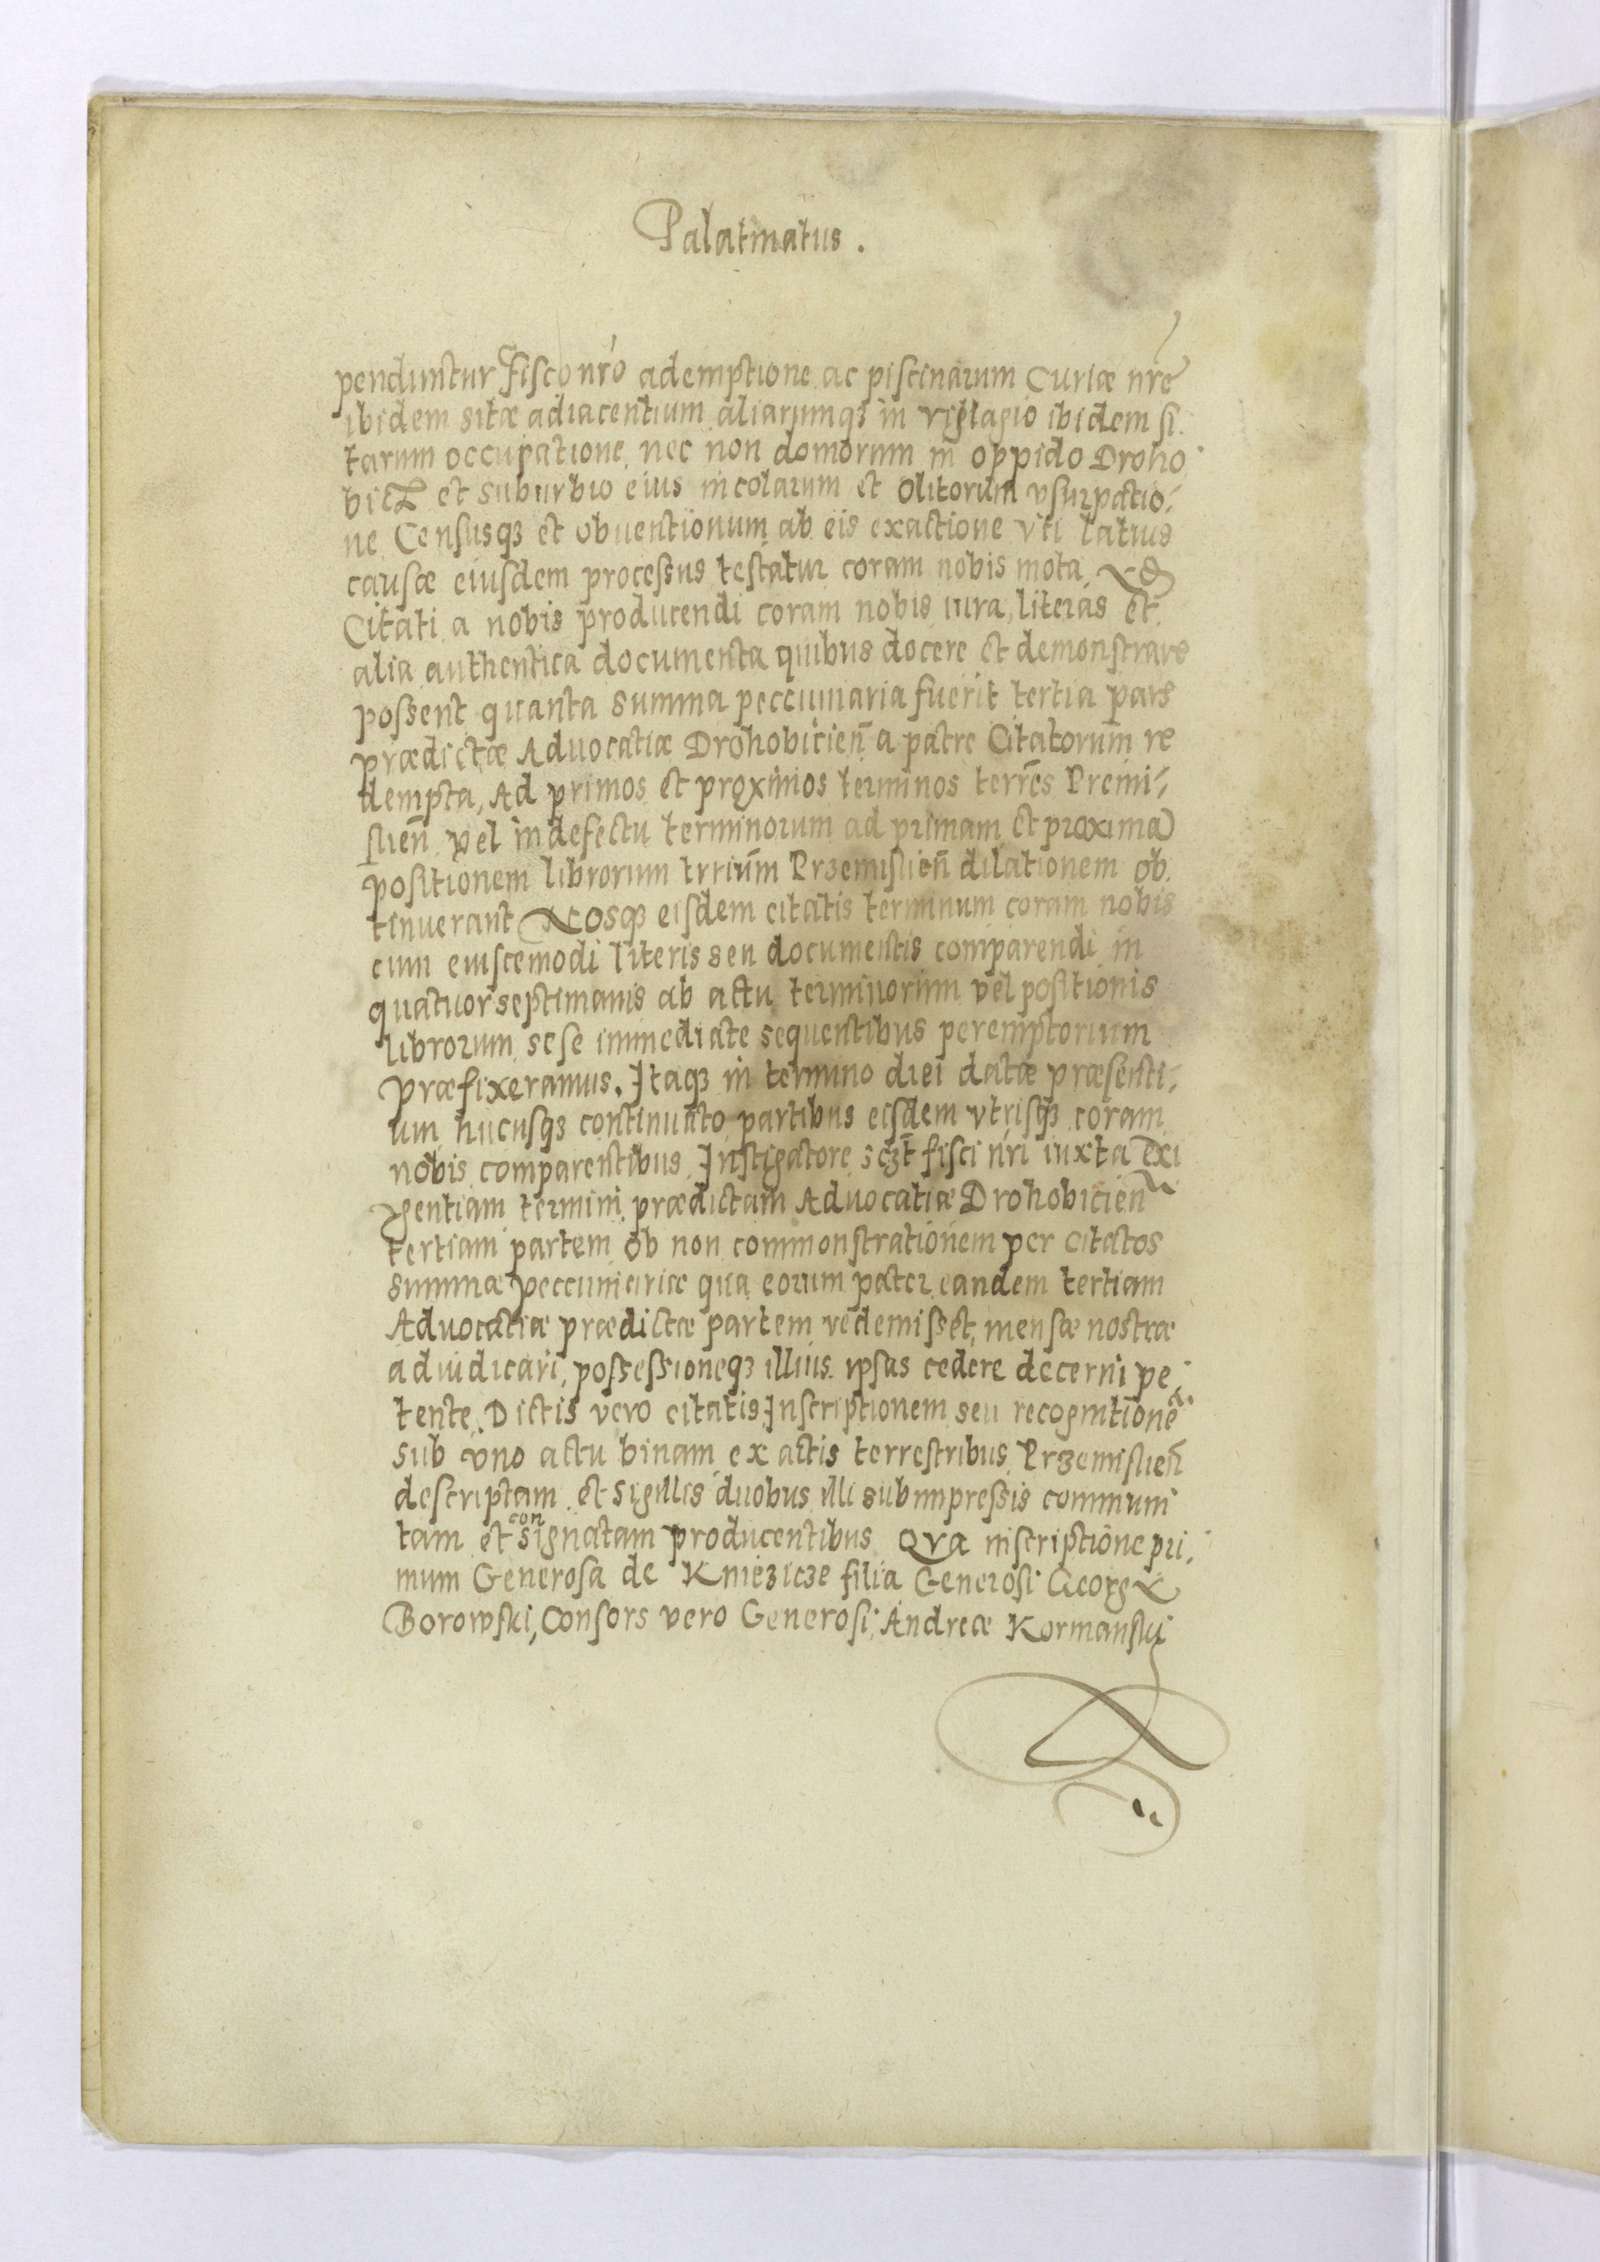 Palatinatus.
penduntur fisco nr̄o ademptione ac piscinarum Curiæ nrē
ibidem sitæ adiacentium aliarumq3 in villagio ibidem si
tarum occupatione nec non domorum in oppido Droho
bicz et suburbio eius incolarum et olitorum vsurpatio:
ne Censusq3 et obuentionum ab eis exactione vti latius
causæ eiusdem processus testatur coram nobis mota
Citati a nobis producendi coram nobis iura, literas et
alia authentica documenta quibus docere et demonstrare
possent quanta summa peccuniaria fuerit tertia pars
prædictæ Aduocatiæ Drohobicien̄ a patre Citatorum re
dempta, Ad primos et proximos terminos terrēs Premi:
slien̄ vel in defectu terminorum ad primam et proxima
positionem librorum trrium̄ Przemislien̄ dilationem ob
tinuerant Nosq3 eisdem citatis terminum coram nobis
cum eiuscemodi literis seu documentis comparendi in
quatuor septimanis ab actu terminorum vel positionis
librorum sese immediate sequentibus peremptorium
præfixeramus. Itaq3 in termino diei datæ præsenti:
um hucusq3 continuato partibus eisdem vtrisq3 coram
nobis comparentibus Instigatore sczt̄ fisci nr̄i iuxta exi
gentiam termini prædictam Aduocatiæ Drohobicien̄
tertiam partem ob non commonstrationem per citatos
summæ peccuniariæ qua eorum pater eandem tertiam
Aduocatiæ prædictæ partem redemisset, mensæ nostræ
adiudicari, possessioneq3 illius ipsas cedere decerni pe:
tente. Dictis vero citatis Inscriptionem seu recognitionē
sub vno actu binam ex actis terrestribus Przemislien̄
descriptam et sigillis duobus illi subimpressis communi
tam et consignatam producentibus Qva inscriptione pri:
mum Generosa de Kniezicze filia Generosi Georgy
Borowski, Consors vero Generosi Andreæ Kormanski